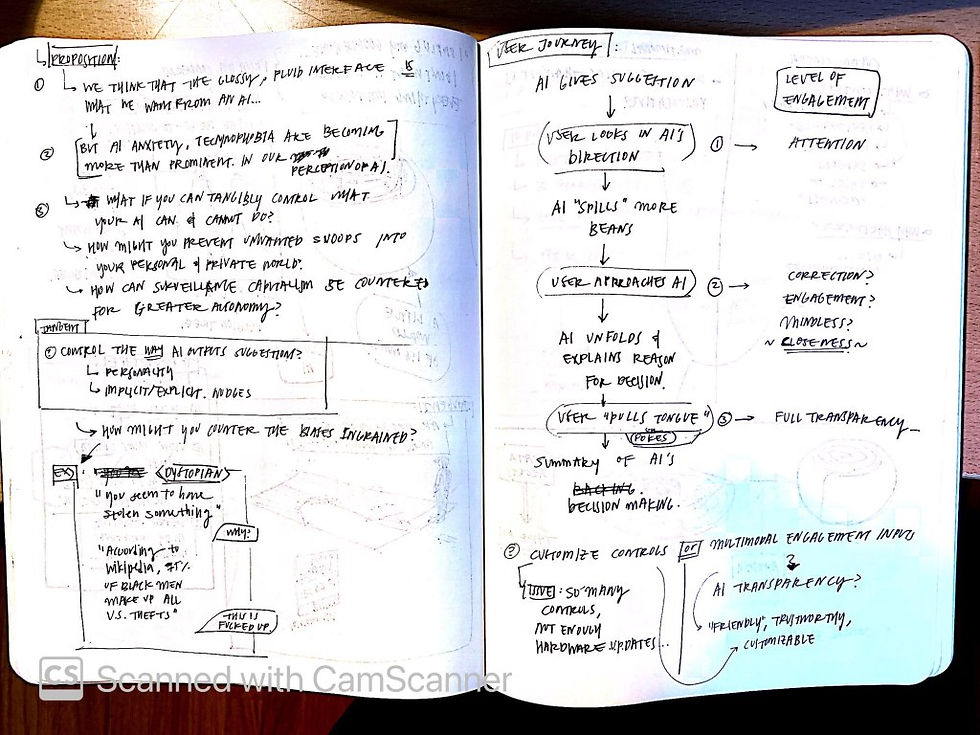 PROPOSITION:
① WE THINK THAT THE GLOSSY, FLUID INTERFACE IS
WHAT WE WANT FROM AN AI...
② BUT AI ANXIETY, TECHNOPHOBIA ARE BECOMING
MORE THAN PROMINENT. IN OUR
PERCEPTION OF AI.
③ WHAT IF YOU CAN TANGIBLY CONTROL WHAT
YOUR AI CAN & CANNOT DO?
HOW MIGHT YOU PREVENT UNWANTED SNOOPS INTO
YOUR PERSONAL & PRIVATE WORLD.
HOW CAN SURVEILLANCE CAPITALISM BE COUNTERED
FOR GREATER AUTONOMY?
TANGENT
CONTROL THE WAY AI OUTPUTS SUGGESTION?
PERSONALITY
IMPLICIT/EXPLICIT. NUDGES
HOW MIGHT YOU COUNTER THE BIASES INGRAINED?
EX) : <DYSTOPIAN>
"you seem to have
stolen something"
WHY?
"According to
wikipedia, %
OF BLACK MEN
MAKE UP ALL
U.S. THEFTS"
THIS IS
FUCKED UP.
USER JOURNEY:
AI GIVES SUGGESTION
LEVEL OF
ENGAGEMENT
USER LOOKS IN AI'S
DIRECTION
① → ATTENTION
AI "SPILLS" MORE
BEANS
USER APPROACHES AI
② → CORRECTION?
ENGAGEMENT?
MINDLESS?
~ CLOSENESS ~
AI UNFOLDS &
EXPLAINS REASON
FOR DECISION.
USER "PULLS TONGUE"
OR
POKES
③ → FULL TRANSPARENCY_
SUMMARY OF AI'S
BACKING.
DECISION MAKING.
? CUSTOMIZE CONTROLS
: SO MANY
CONTROLS,
NOT ENOUGH
HARDWARE UPDATES...
or MULTIMODAL ENGAGEMENT INPUTS
AI TRANSPARENCY?
"FRIENDLY", TRUSTWORTHY,
CUSTOMIZABLE
CS Scanned with CamScanner